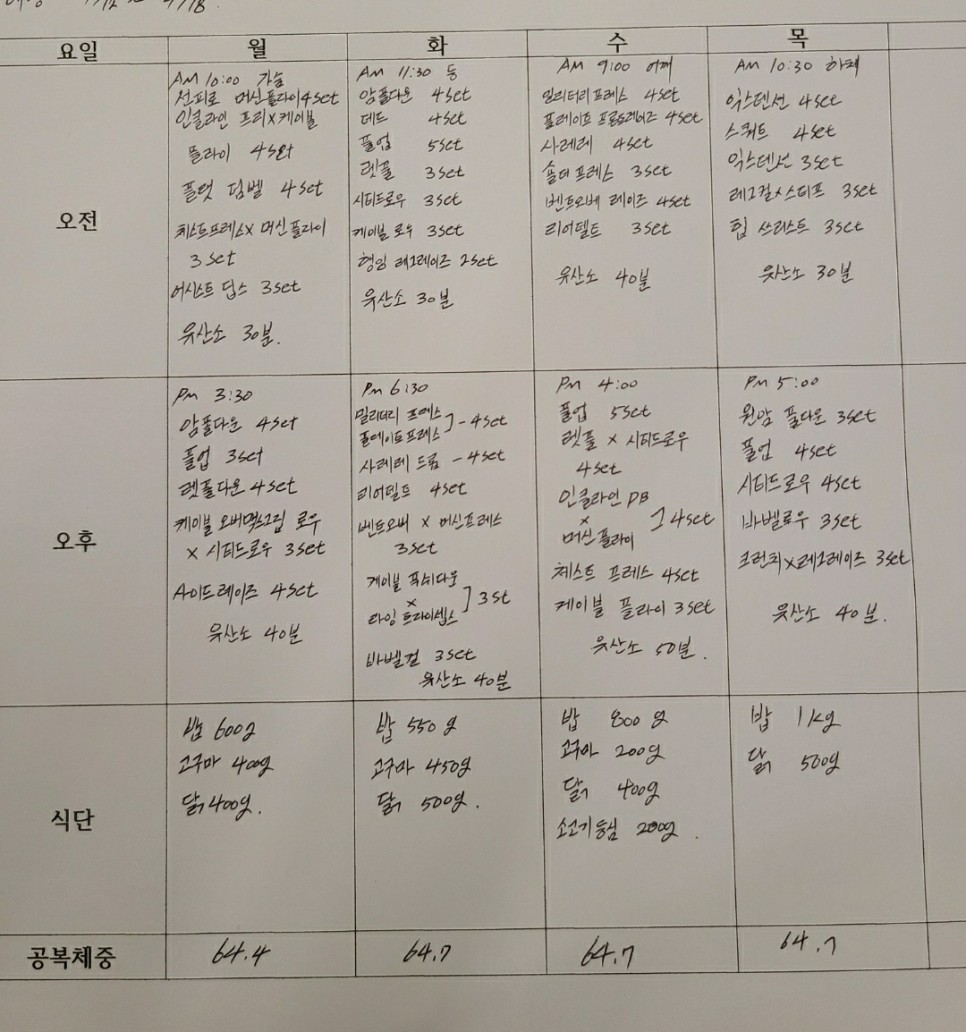 요일 월 화 수 목
오전
AM 10:00 가슴
선피로 머신플라이 4set
인클라인 프리 x 케이블
플라이 4set
플랫 덤벨 4set
체스트프레스 x 머신플라이
3set
어시스트 딥스 3set
유산소 30분.
AM 11:30 등
암풀다운 4set
데드 4set
풀업 5set
렛풀 3set
시티드로우 3set
케이블 로우 3set
행잉 레그레이즈 2set
유산소 30분
AM 9:00 어깨
밀리터리프레스 4set
플레이트 프론트레이즈 4set
사레레 4set
숄더프레스 3set
벤트오버 레이즈 4set
리어델트 3set
유산소 40분
AM 10:30 하체
익스텐션 4set
스쿼트 4set
익스텐션 3set
레그컬 x 스티프 3set
힙 쓰러스트 3set
유산소 30분
오후
PM 3:30
암풀다운 4set
풀업 3set
렛풀다운 4set
케이블 오버언더그립 로우
x 시티드로우 3set
사이드레이즈 4set
유산소 40분
PM 6:30
밀리터리 프레스
플레이트프레스 ] - 4set
사레레 드롭 - 4set
리어델트 4set
벤트오버 x 머신프레스
3set
케이블 푸쉬다운
x
라잉 트라이셉스 ] 3st
바벨컬 3set
유산소 40분
PM 4:00
풀업 5set
렛풀 x 시티드로우
4set
인클라인 DB
x ] 4set
머신플라이
체스트 프레스 4set
케이블 플라이 3set
유산소 50분.
PM 5:00
원암 풀다운 3set
풀업 4set
시티드로우 4set
바벨로우 3set
크런치 x 레그레이즈 3set
유산소 40분.
식단
밥 600g
고구마 400g
닭 400g.
밥 550g
고구마 450g
닭 500g.
밥 800g
고구마 200g
닭 400g
소고기등심 200g.
밥 1kg
닭 500g
공복체중 64.4 64.7 64.7 64.7